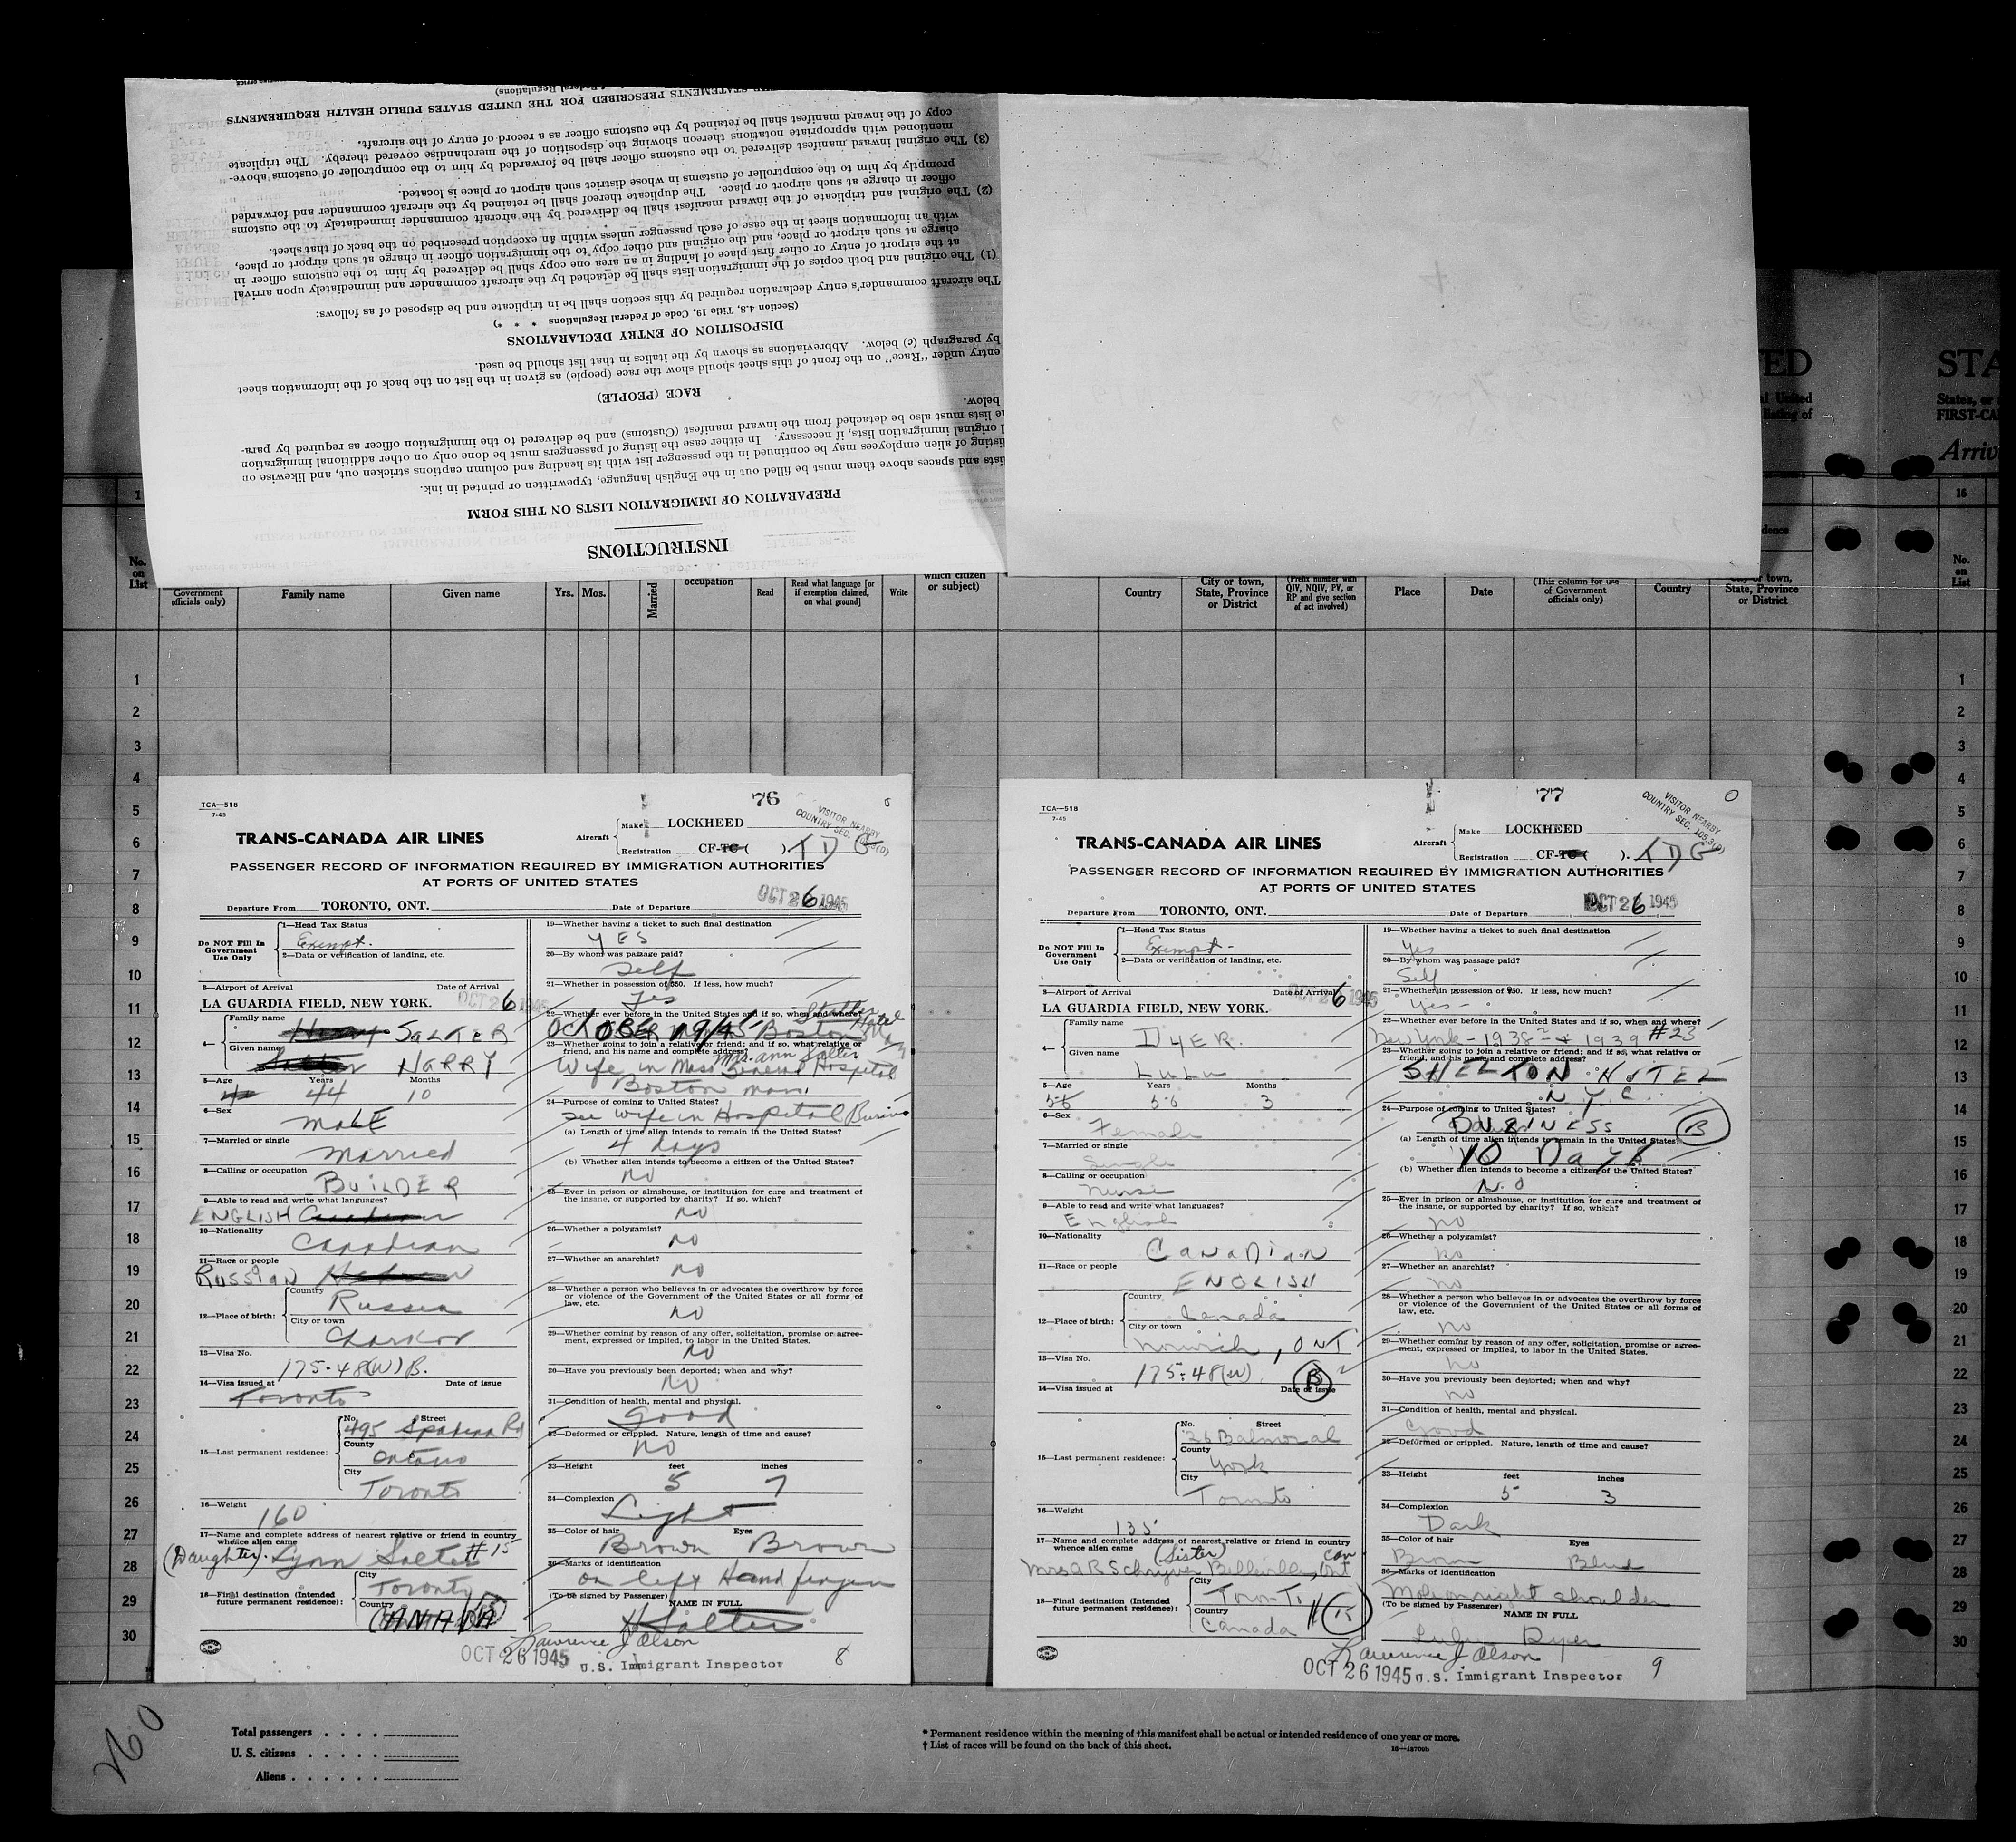 INSTRUCTIONS
PREPARATION OF IMMIGRATION LISTS ON THIS FORM
ists and spaces above them must be filled out in the English language, typewritten or printed in ink.
isting of alien employees may be continued in the passenger list with its heading and column captions stricken out, and likewise on
l original immigration lists, if necessary. In either case the listing of passengers must be done only on other additional immigration
he lists must also be detached from the inward manifest (Customs) and be delivered to the immigration officer as required by para-
below.
RACE (PEOPLE)
entry under "Race" on the front of this sheet should show the race (people) as given in the list on the back of the information sheet
by paragraph (c) below. Abbreviations as shown by the italics in that list should be used.
DISPOSITION OF ENTRY DECLARATIONS
(Section 4.8, Title 19, Code of Federal Regulations * * *)
The aircraft commander's entry declaration required by this section shall be in triplicate and be disposed of as follows:
(1) The original and both copies of the immigration lists shall be detached by the aircraft commander and immediately upon arrival
at the airport of entry or other first place of landing in an area one copy shall be delivered by him to the customs officer in
charge at such airport or place, and the original and other copy to the immigration officer in charge at such airport or place,
with an information sheet in the case of each passenger unless within an exception prescribed on the back of that sheet.
(2) The original and triplicate of the inward manifest shall be delivered by the aircraft commander immediately to the customs
officer in charge at such airport or place. The duplicate thereof shall be retained by the aircraft commander and forwarded
promptly by him to the comptroller of customs in whose district such airport or place is located.
(3) The original inward manifest delivered to the customs officer shall be forwarded by him to the comptroller of customs above-
mentioned with appropriate notations thereon showing the disposition of the merchandise covered thereby. The triplicate
copy of the inward manifest shall be retained by the customs officer as a record of entry of the aircraft.
STATEMENTS PRESCRIBED FOR THE UNITED STATES PUBLIC HEALTH REQUIREMENTS
of Federal Regulations)
ED STA
al United States, or a
listing of FIRST-CA
Arriv
16
No. on List
Government officials only)
Family name
Given name
Yrs. Mos.
Married
occupation
Read
Read what language [or if exemption claimed, on what ground]
Write
which citizen or subject)
Country
City or town, State, Province or District
(Prefix number with QIV, NQIV, PV, or RP and give section of act involved)
Place
Date
(This column for use of Government officials only)
Country
City or town, State, Province or District
No. on List
1
2
3
4
5
6
7
8
9
10
11
12
13
14
15
16
17
18
19
20
21
22
23
24
25
26
27
28
29
30
TCA—518
7-45
76
VISITOR NEARBY
COUNTRY SEC.
TRANS-CANADA AIR LINES
Aircraft
Make LOCKHEED
Registration CF-TC ( ). TDG
PASSENGER RECORD OF INFORMATION REQUIRED BY IMMIGRATION AUTHORITIES
AT PORTS OF UNITED STATES
Departure From TORONTO, ONT. Date of Departure OCT 26 1945
Do NOT Fill In Government Use Only
1—Head Tax Status
Exempt.
2—Data or verification of landing, etc.
3—Airport of Arrival Date of Arrival
LA GUARDIA FIELD, NEW YORK. OCT 26 1945
4— Family name SALTER
Given name HARRY
5—Age Years Months
44 10
6—Sex
MALE
7—Married or single
Married
8—Calling or occupation
BUILDER
9—Able to read and write what languages?
ENGLISH
10—Nationality
Canadian
11—Race or people
RUSSIAN Hebrew
12—Place of birth: Country
Russia
City or town
Charkov
13—Visa No.
175-48(W)B.
14—Visa issued at Date of issue
Toronto
15—Last permanent residence: No. Street
495 Spadina Rd
County
Ontario
City
Toronto
16—Weight
160
17—Name and complete address of nearest relative or friend in country
whence alien came
(Daughter). Lynn Salter #15
18—Final destination (Intended future permanent residence): City
Toronto
Country
CANADA
19—Whether having a ticket to such final destination
YES
20—By whom was passage paid?
Self
21—Whether in possession of $50. If less, how much?
Yes
22—Whether ever before in the United States and if so, when and where?
OCTOBER 1945 Boston Statler Hotel
23—Whether going to join a relative or friend; and if so, what relative or
friend, and his name and complete address?
Mrs. Ann Salter
Wife in Mass General Hospital
Boston Mass.
24—Purpose of coming to United States?
See wife in Hospital
(a) Length of time alien intends to remain in the United States?
4 days
(b) Whether alien intends to become a citizen of the United States?
NO
25—Ever in prison or almshouse, or institution for care and treatment of
the insane, or supported by charity? If so, which?
NO
26—Whether a polygamist?
NO
27—Whether an anarchist?
NO
28—Whether a person who believes in or advocates the overthrow by force
or violence of the Government of the United States or all forms of
law, etc.
NO
29—Whether coming by reason of any offer, solicitation, promise or agree-
ment, expressed or implied, to labor in the United States.
NO
30—Have you previously been deported; when and why?
NO
31—Condition of health, mental and physical.
Good
32—Deformed or crippled. Nature, length of time and cause?
NO
33—Height feet inches
5 7
34—Complexion
Light
35—Color of hair Eyes
Brown Brown
36—Marks of identification
on left Hand finger
(To be signed by Passenger) NAME IN FULL
H Salter
Lawrence J Olson
OCT 26 1945 U.S. Immigrant Inspector
8
TCA—518
7-45
77
VISITOR NEARBY
COUNTRY SEC.
TRANS-CANADA AIR LINES
Aircraft
Make LOCKHEED
Registration CF-TC ( ). TDG
PASSENGER RECORD OF INFORMATION REQUIRED BY IMMIGRATION AUTHORITIES
AT PORTS OF UNITED STATES
Departure From TORONTO, ONT. Date of Departure OCT 26 1945
Do NOT Fill In Government Use Only
1—Head Tax Status
Exempt-
2—Data or verification of landing, etc.
3—Airport of Arrival Date of Arrival
LA GUARDIA FIELD, NEW YORK. OCT 26 1945
4— Family name
DYER.
Given name
LuLu
5—Age Years Months
56 56 3
6—Sex
Female
7—Married or single
Single
8—Calling or occupation
Nurse
9—Able to read and write what languages?
English
10—Nationality
CANADIAN
11—Race or people
ENGLISH
12—Place of birth: Country
Canada
City or town
Norwich, ONT
13—Visa No.
175-48(W). B
14—Visa issued at Date of issue
15—Last permanent residence: No. Street
26 Balmoral
County
York
City
Toronto
16—Weight
135
17—Name and complete address of nearest relative or friend in country
whence alien came
(Sister)
Mrs A R Schryver Belleville, Ont Can
18—Final destination (Intended future permanent residence): City
Toronto
Country
Canada
19—Whether having a ticket to such final destination
Yes
20—By whom was passage paid?
Self
21—Whether in possession of $50. If less, how much?
Yes-
22—Whether ever before in the United States and if so, when and where?
New York - 1938 + 1939 #23
23—Whether going to join a relative or friend; and if so, what relative or
friend, and his name and complete address?
SHELTON HOTEL
N.Y.C.
24—Purpose of coming to United States?
BUSINESS B
(a) Length of time alien intends to remain in the United States?
10 Days
(b) Whether alien intends to become a citizen of the United States?
NO
25—Ever in prison or almshouse, or institution for care and treatment of
the insane, or supported by charity? If so, which?
no
26—Whether a polygamist?
no
27—Whether an anarchist?
no
28—Whether a person who believes in or advocates the overthrow by force
or violence of the Government of the United States or all forms of
law, etc.
no
29—Whether coming by reason of any offer, solicitation, promise or agree-
ment, expressed or implied, to labor in the United States.
no
30—Have you previously been deported; when and why?
no
31—Condition of health, mental and physical.
Good
32—Deformed or crippled. Nature, length of time and cause?
33—Height feet inches
5 3
34—Complexion
Dark
35—Color of hair Eyes
Brown Blue
36—Marks of identification
Mole on right shoulder
(To be signed by Passenger) NAME IN FULL
Lulu Dyer
Lawrence J Olson
OCT 26 1945 U.S. Immigrant Inspector
9
Total passengers
U. S. citizens
Aliens
* Permanent residence within the meaning of this manifest shall be actual or intended residence of one year or more.
† List of races will be found on the back of this sheet.